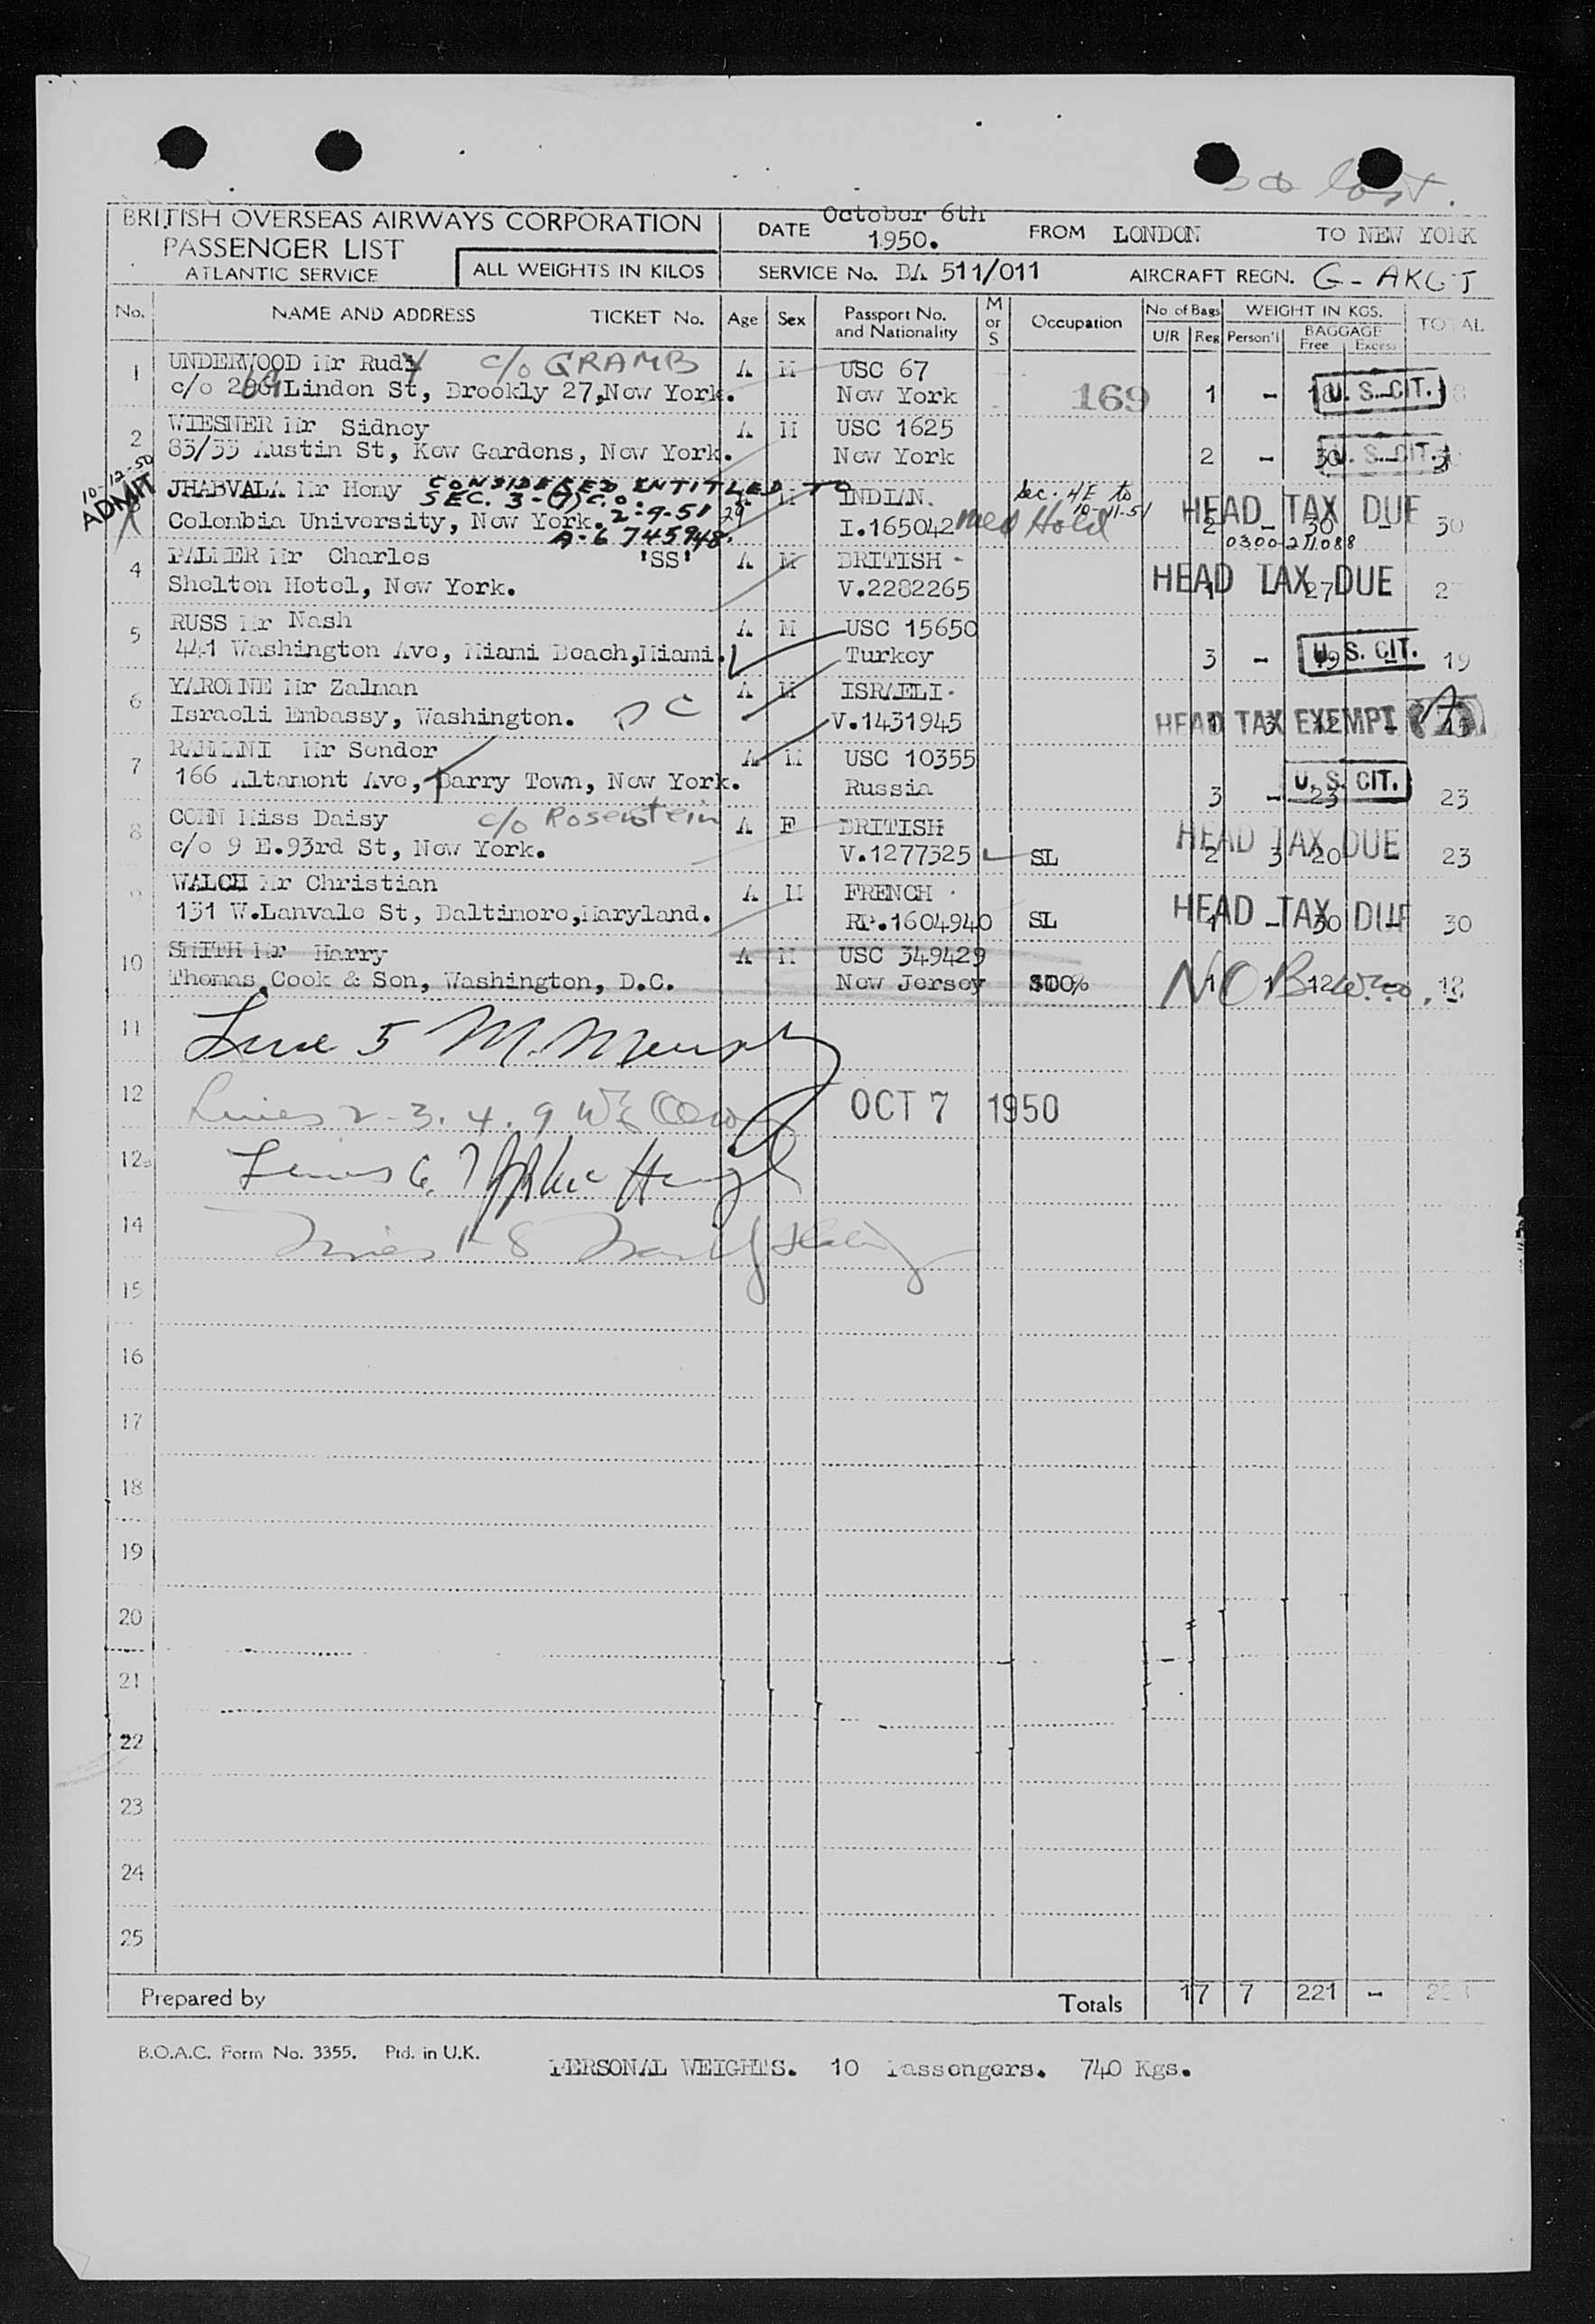 BRITISH OVERSEAS AIRWAYS CORPORATION
PASSENGER LIST
ATLANTIC SERVICE
ALL WEIGHTS IN KILOS
DATE October 6th 1950.
FROM LONDON TO NEW YORK
SERVICE No. BA 511/011 AIRCRAFT REGN. G-AKGJ
No. NAME AND ADDRESS TICKET No. Age Sex Passport No. and Nationality M or S Occupation No of Bags U/R Reg WEIGHT IN KGS. Person'l BAGGAGE Free Excess TOTAL
1 UNDERWOOD Mr Rudy c/o GRAMB A M USC 67
c/o Linden St, Brookly 27, New York. New York 169 1 - 18 U.S. CIT.
2 WIESNER Mr Sidney A M USC 1625
83/33 Austin St, Kew Gardens, New York. New York 2 - 30 U.S. CIT.
10-12-50
ADMIT
JHABVALA Mr Homy CONSIDERED ENTITLED TO M INDIAN. Sec. 4E to
SEC. 3-(7) C.O. 2-9-51 29 10-11-51
Colombia University, New York. I.165042 Med Hold 2 - 30 - 30 HEAD TAX DUE
A-6 745948. 0300-211088
4 PALMER Mr Charles 'SS' A M BRITISH
Shelton Hotel, New York. V.2282265 27 HEAD TAX DUE
5 RUSS Mr Nash A M USC 15650
441 Washington Ave, Miami Beach, Miami. Turkey 3 - 19 - 19 U.S. CIT.
6 YAROMNE Mr Zalman A M ISRAELI
Israeli Embassy, Washington. DC V.1431945 1 3 12 - HEAD TAX EXEMPT
7 Mr Sender A M USC 10355
166 Altamont Ave, Tarry Town, New York. Russia 3 - 23 23 U.S. CIT.
8 COHN Miss Daisy c/o Rosenstein A F BRITISH
c/o 9 E.93rd St, New York. V.1277325 SL 2 3 20 23 HEAD TAX DUE
WALCH Mr Christian A M FRENCH
131 W.Lanvale St, Baltimore, Maryland. RP.1604940 SL 1 - 30 - 30 HEAD TAX DUE
10 SMITH Mr Harry A M USC 349429
Thomas Cook & Son, Washington, D.C. New Jersey 1 1 12 NO
11 Line 5 M. Murphy
12 Lines 2-3.4.9 OCT 7 1950
Lines 6.7
14 Lines 1-8
15
16
17
18
19
20
21
22
23
24
25
Prepared by Totals 17 7 221 -
B.O.A.C. Form No. 3355. Ptd. in U.K.
PERSONAL WEIGHTS. 10 Passengers. 740 Kgs.